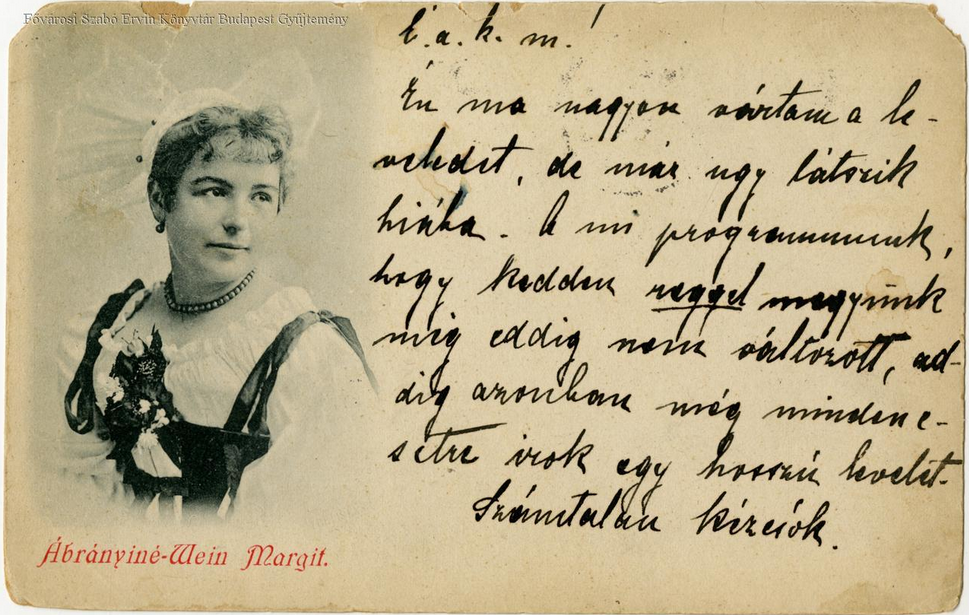 Fővárosi Szabó Ervin Könyvtár Budapest Gyűjtemény
É. a. k. m.!
Én ma nagyon vártam a le-
veledet, de már ugy látszik
hiába. A mi programmunk,
hogy kedden reggel megyünk
még eddig nem változott, ad-
dig azonban még minden e-
setre irok egy hosszú levelet.
Számtalan kézcsók.
Ábrányiné-Wein Margit.